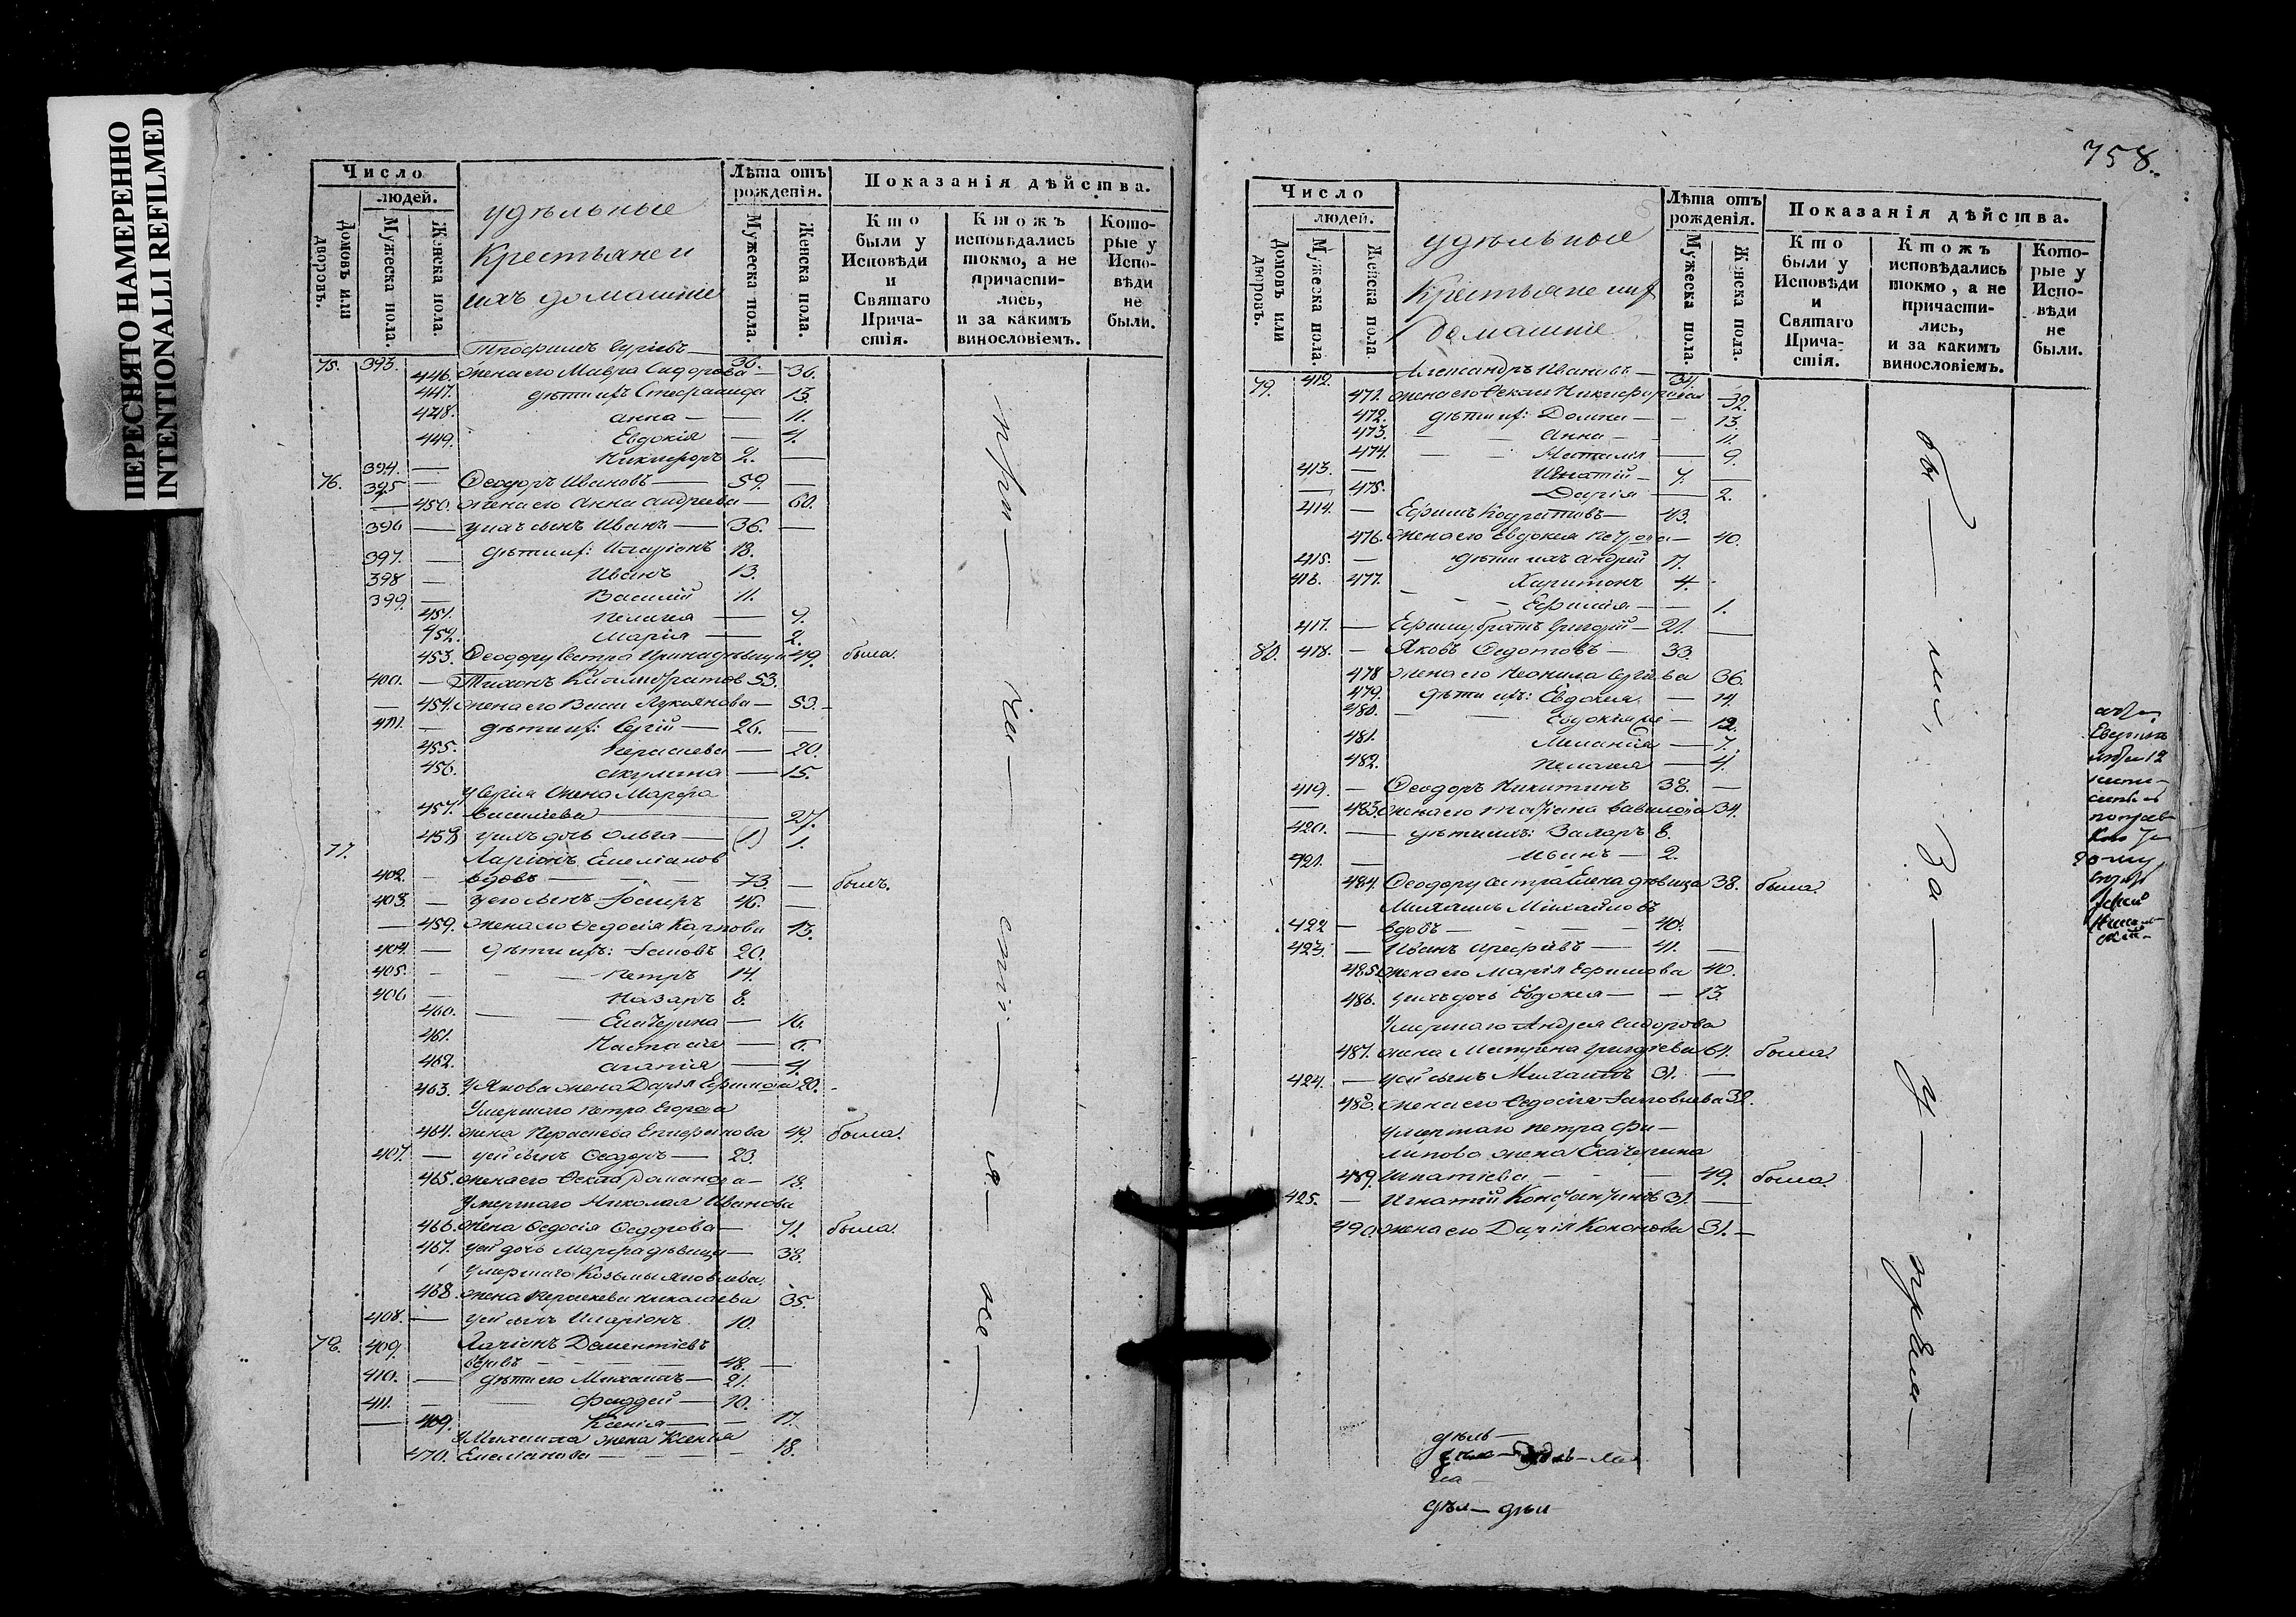 ПЕРЕСНЯТО НАМЕРЕННО
INTENTIONALLI REFILMED
Число
людей.
Домовъ или дворовъ.
Мужеска пола.
Женска пола.
удѣльные
крестьяне и
ихъ домашніе
Лѣта отъ рожденія.
Мужеска пола.
Женска пола.
Показанія дѣйства.
Кто были у Исповѣди и Святаго Прича-стія.
Ктожъ исповѣдались токмо, а не причасти-лись, и за какимъ винословіемъ.
Кото-рые у Испо-вѣди не были.
75. 393. Трофимъ 36.
446. жена его Мавра Сидорова — 36.
447. дѣти ихъ Стефанида 13.
448. Анна — 11.
449. Евдокія — 4.
394. — Никифоръ 2. —
76. 395 — Ѳеодоръ Ивановъ — 59. —
— 450. жена его Анна Андреева — 60.
396 — у нихъ сынъ Иванъ — 36. —
397. — дѣти их: Иларіонъ 18.
398 — Иванъ 13.
399. — Василій 11.
451. Пелагея — 9.
452. Марія — 2.
453. Ѳеодору сестра Ирина дѣвица 49. была.
400. — Тихонъ 53.
— 454. жена его Васса Лукьянова — 53. —
401. — дѣти их: Сергій — 26. —
455. Параскева — 20.
456. Акулина — 15.
у Сергія жена Марфа
457. Васильева — 27.
458 у нихъ дочь Ольга — (1) 1.
77. Ларіонъ Емеліановъ
402. — вдовъ — 73. — былъ.
403. — у его сынъ 46. —
— 459. жена его Ѳедосія Карпова 43.
404. — дѣти ихъ: Іаковъ 20.
405. — — Петръ 14.
406 — Назаръ 8.
460. — — Екатерина — 16.
461. Настасія — 6.
462. Агапія — 4.
463. у Якова жена Дарія Ефимова 20. —
Умершаго Петра Егорова
464. жена Параскева 49. была.
407. — у ей сынъ Ѳеодоръ — 23.
465. жена его Ѳекла Романова — 18.
Умершаго Николая Иванова
466. жена Ѳедосія Ѳедорова — 71. была.
467. у ей дочь Марфа дѣвица — 38.
Умершаго Козьмы Яковлева
468. жена Параскева Николаева 35.
408. — у ей сынъ Иларіонъ 10.
78. 409. Ларіонъ Дементіевъ
вдовъ — — — — 48. —
410. — дѣти его Михаилъ — 21.
411. — — Фаддей — 10.
— 409. Ксенія — — 17.
у Михаила жена Ксенія
470. Емеліанова — — — — 18.
при — ча — сти — я — же —
758.
Число
людей.
Домовъ или дворовъ.
Мужеска пола.
Женска пола
удѣльные
крестьяне ихъ
домашніе
Лѣта отъ рожденія.
Мужеска пола.
Женска пола.
Показанія дѣйства.
Кто были у Исповѣди и Святаго Прича-стія.
Ктожъ исповѣдались токмо, а не причасти-лись, и за какимъ винословіемъ.
Кото-рые у Испо-вѣди не были.
79. 412. Александръ Ивановъ — 34.
471. жена его Ѳекла Никифорова — 32.
472. дѣти их: Домна — — 13.
473. — — Анна — 11.
474. — — Наталія — 9.
413. — Игнатій — 7. —
— 475. Дарія — 2.
414. — Ефимъ Кодратовъ — 43.
476. жена его Евдокія Петрова — 40.
415. — дѣти ихъ Андрей 17.
416. 477. Харитонъ 4. —
— — Ефимія — — 1.
417. — Ефиму братъ Григорій — 21. —
80. 418. — Яковъ Ѳедотовъ — 33.
478 жена его Неонила Сергѣева 36.
479. дѣти ихъ: Евдокія — 14.
480. — — Евдокія же — 12.
481. Меланія — 7.
482. Пелагея — 4.
419. — Ѳеодоръ Никитинъ 38. —
— 483. жена его Татіана 34.
420. — дѣти ихъ: Захаръ 8.
421. — Иванъ — 2.
484. Ѳеодору сестра Елена дѣвица 38. была.
Михаилъ Михайловъ
422 — вдовъ — — — — 40.
423. — Иванъ — 41. —
485. жена его Марія Ефимова 40.
486. у нихъ дочь Евдокея — — 13.
Умершаго Андрея Сидорова
487. жена Матрена Григорьева 64. была.
424. — у ей сынъ Михаилъ 31. —
488. жена его Ѳедосія Іаковлева 32.
Умершаго Петра Фи-
липова жена Екатерина
489. Игнатіева — — — 49. была.
425. — Игнатій Константиновъ 31. —
490. жена его Дарія Кононова 31. —
бы — ли, за — у — пра —